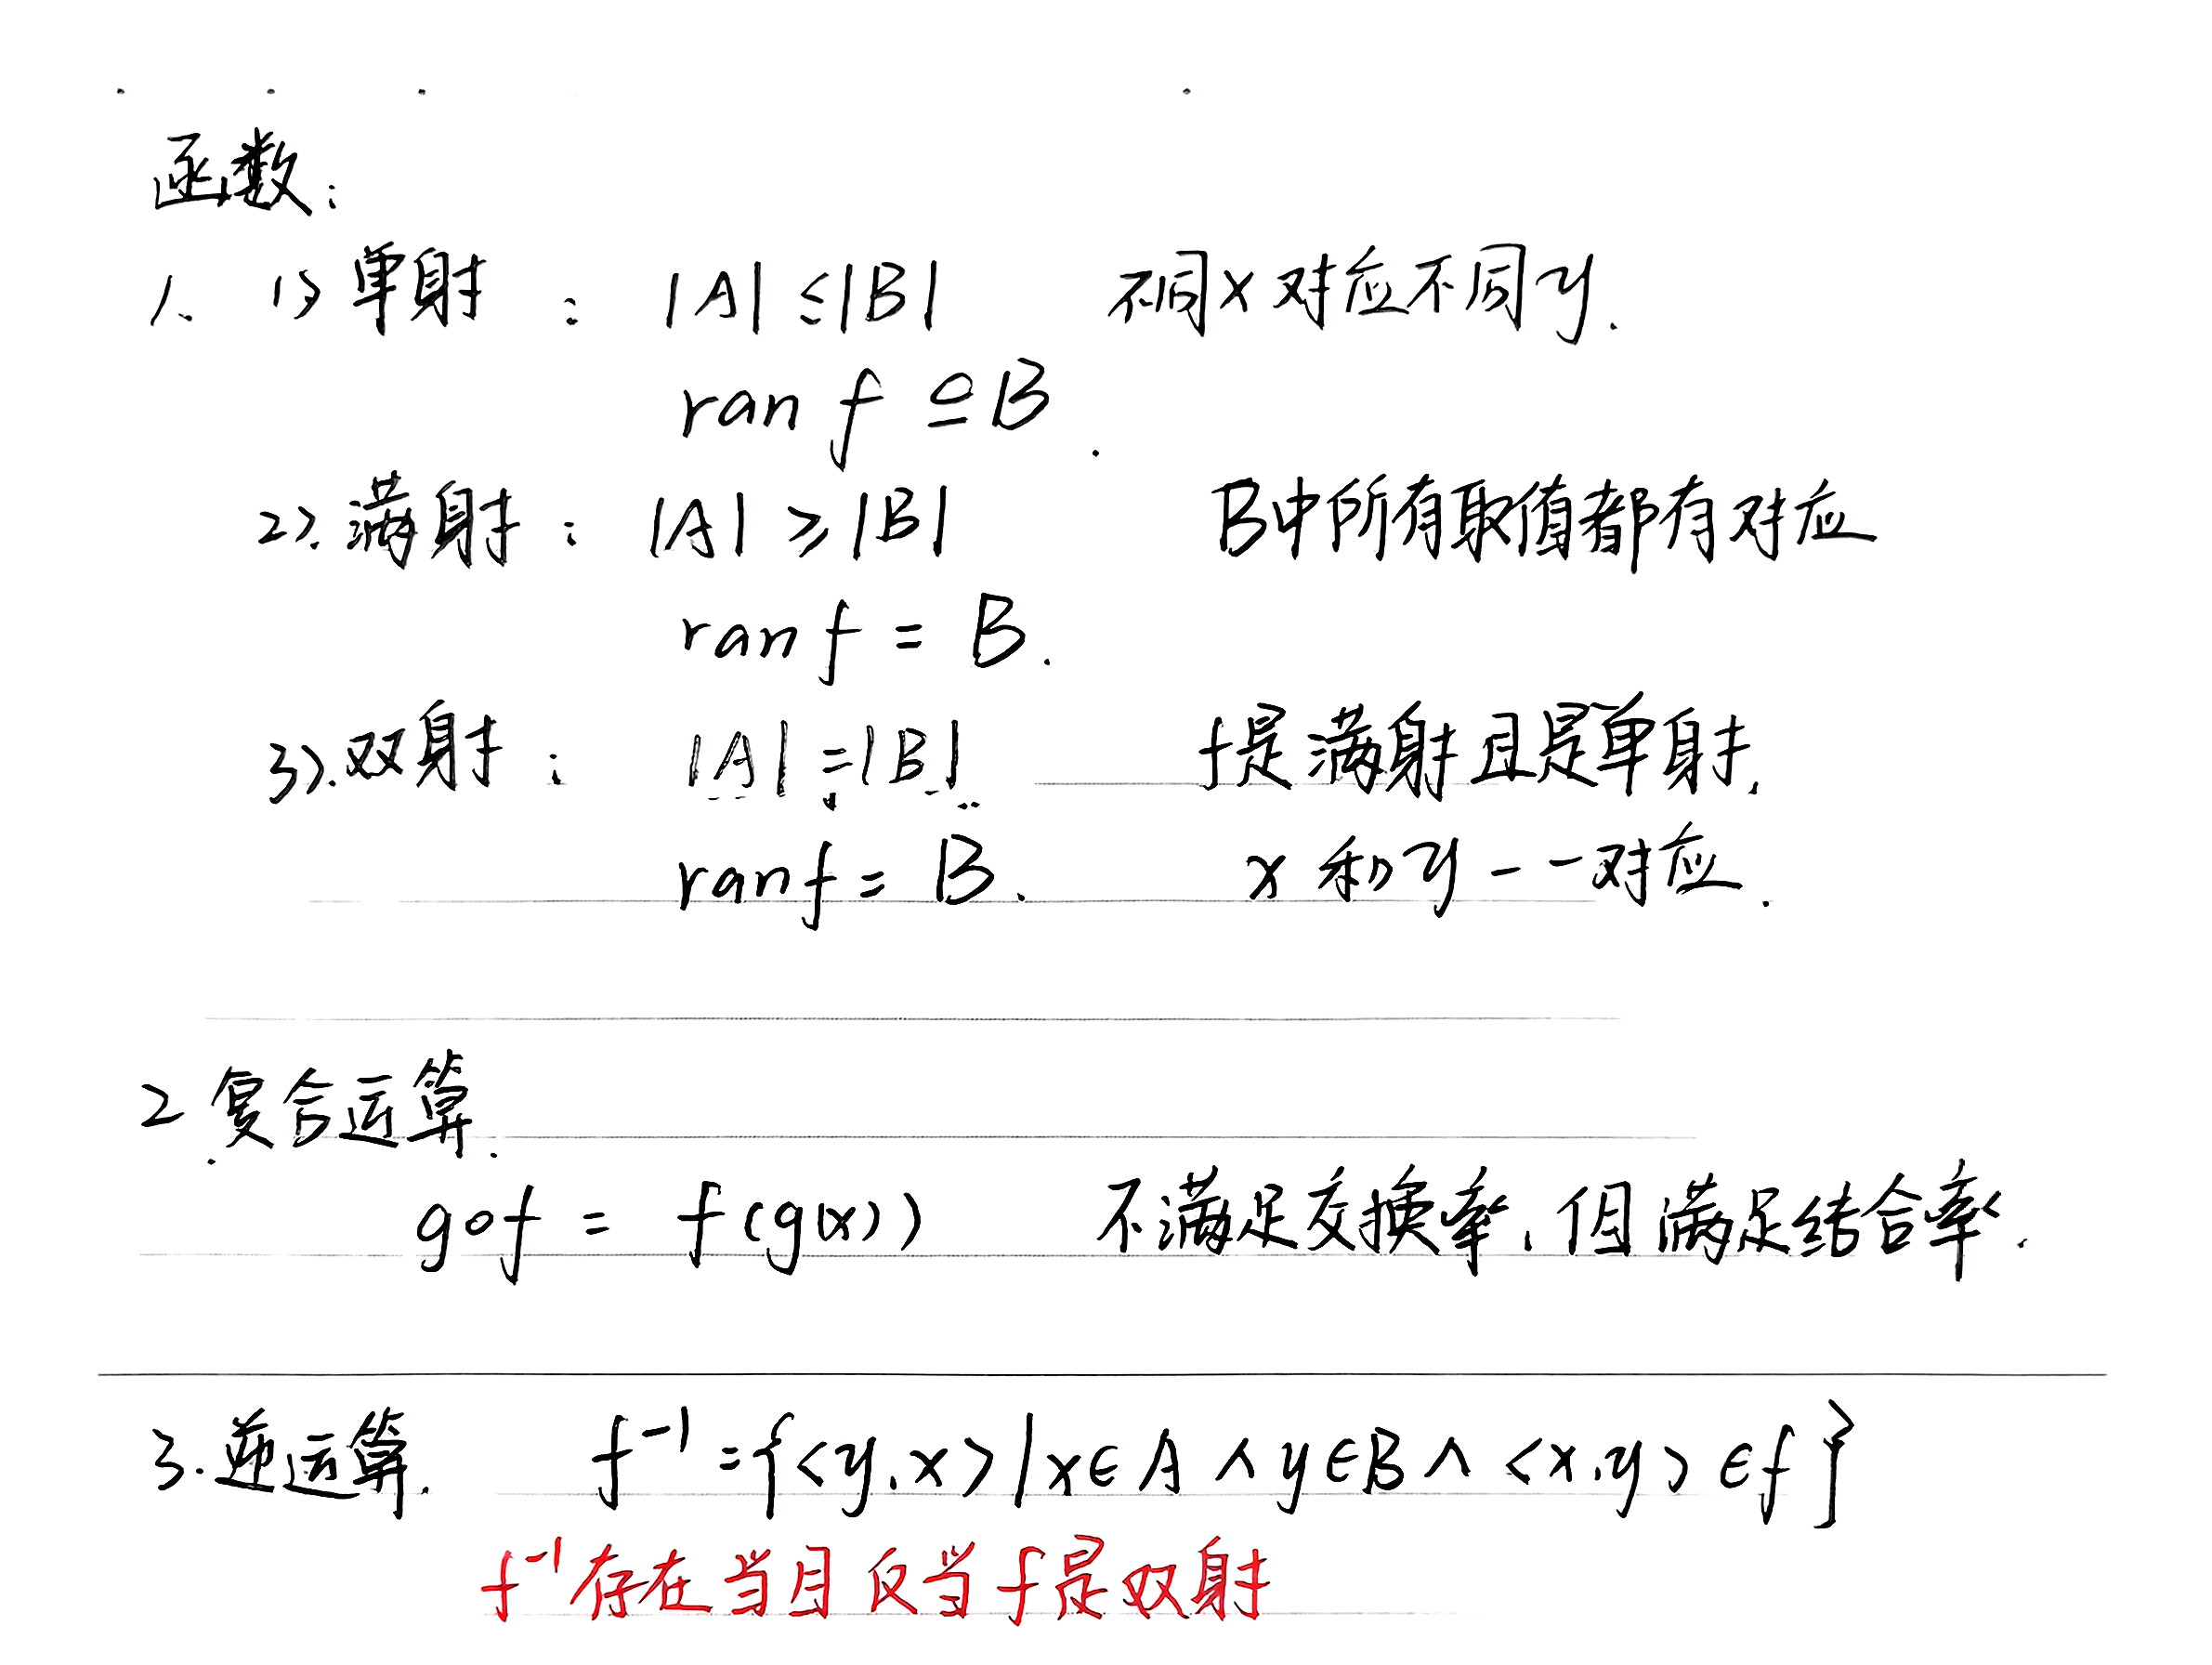 函数:
1. 1) 单射 : |A| ≤ |B| 不同x对应不同y.
ran f ⊆ B.
2). 满射 : |A| ≥ |B| B中所有取值都有对应
ran f = B.
3). 双射 : |A| = |B| f是满射且是单射.
ran f = B. x和y一一对应.
2. 复合运算.
g∘f = f(g(x)) 不满足交换率, 但满足结合率.
3. 逆运算. f⁻¹ = {<y,x> | x∈A ∧ y∈B ∧ <x,y>∈f}
f⁻¹存在当且仅当f是双射